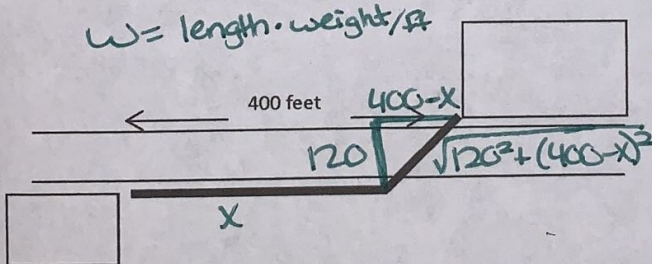 W= length·weight/ft
400 feet
400-x
120
√120²+(400-x)²
x